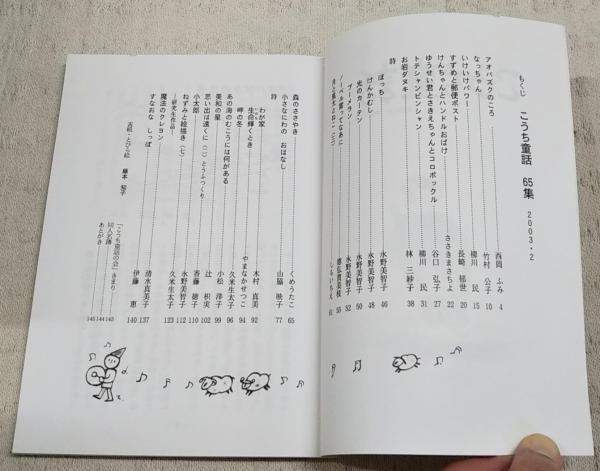 もくじ こうち童話 65集 2003・2
アオバズクのころ 西岡 ふみ 4
なっちゃん 竹村 公子 10
いけいけパワー 柳川 民 15
すずめと郵便ポスト 長崎 郁世 20
けんちゃんとハンドルおばけ ささきまさちよ 22
ゆうせい君とさきえちゃんとコロポックル 谷口 弘子 27
トテシャンピンシャン 柳川 民 31
お岩ダヌキ 林 三紗子 38
詩
ぼっち 永野美智子 46
けんかむし 永野美智子 48
光のカーテン 永野美智子 50
ブーメラン 永野美智子 52
ノーベル賞ってなあに 55
61
森のささやき くめうたこ 65
小さなにわの おはなし 山脇 映子 77
詩
わが家 木村 真美 92
生命輝くとき やまなかせつこ 94
岬の冬 久米生太子 96
あの海のむこうには何がある 小松 洋子 99
美和の星 辻 枳実 102
思い出は遠くに(二)とうふつくり 香藤 徳子 110
小太郎 永野美智子 112
ねずみと絵描き(七) 久米生太子 123
―研究生作品―
魔法のクレヨン 清水真美子 137
すなおな しっぽ 伊藤 恵 140
「こうち童話の会」きまり 143
同人名簿 144
あとがき 145
表紙・とびら絵 藤本 知子